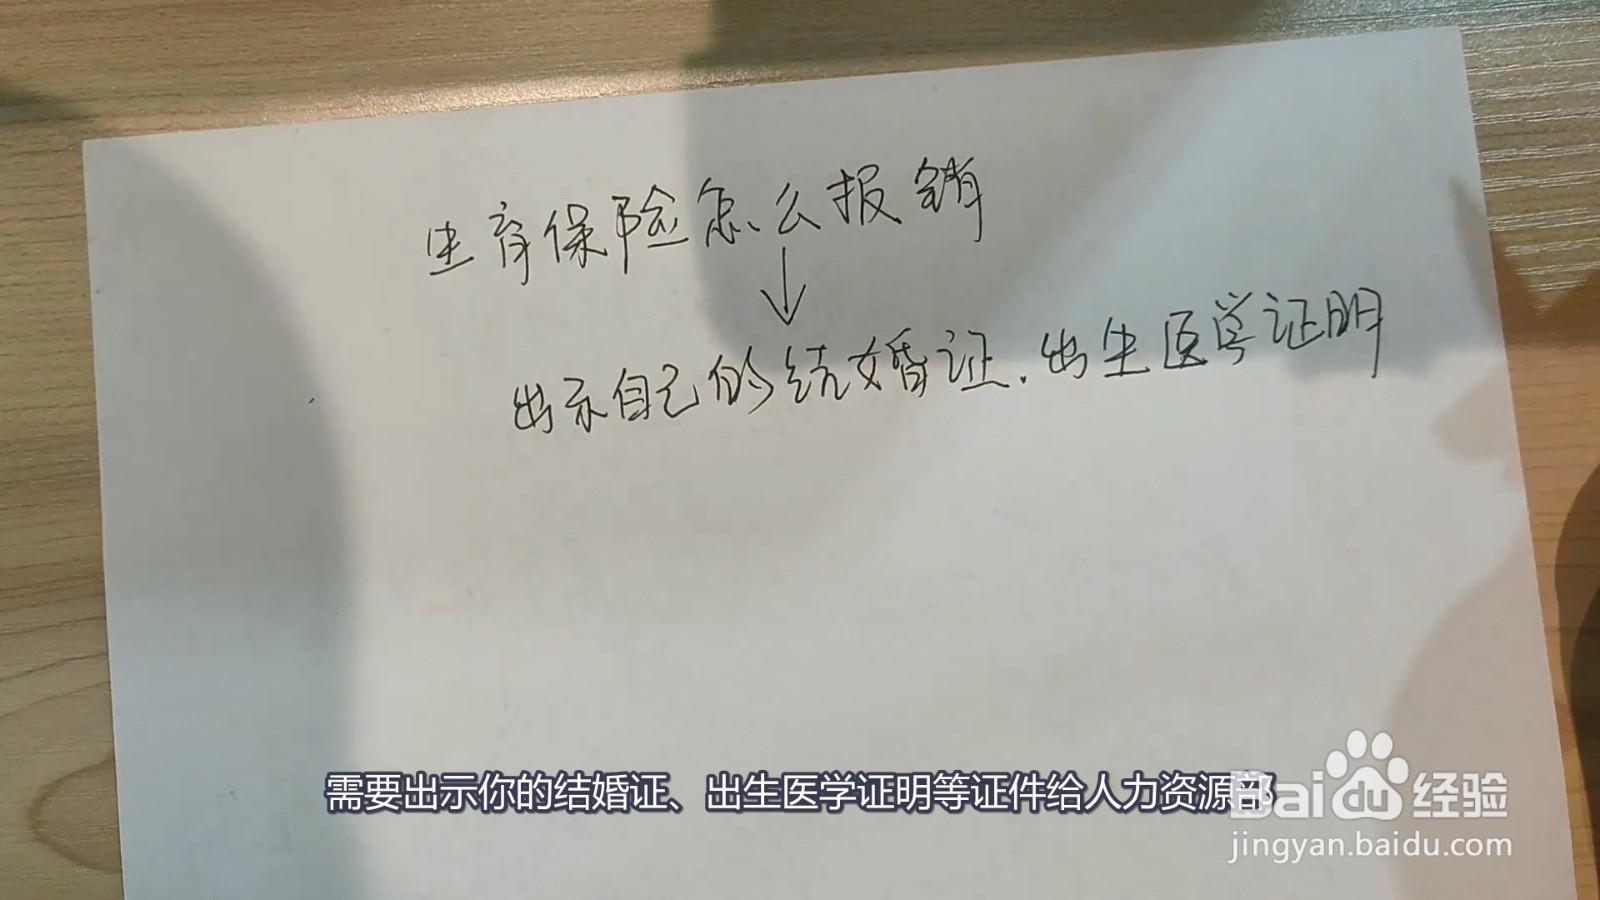 生育保险怎么报销
↓
出示自己的结婚证.出生医学证明
需要出示你的结婚证、出生医学证明等证件给人力资源部
Bai du 经验
jingyan.baidu.com